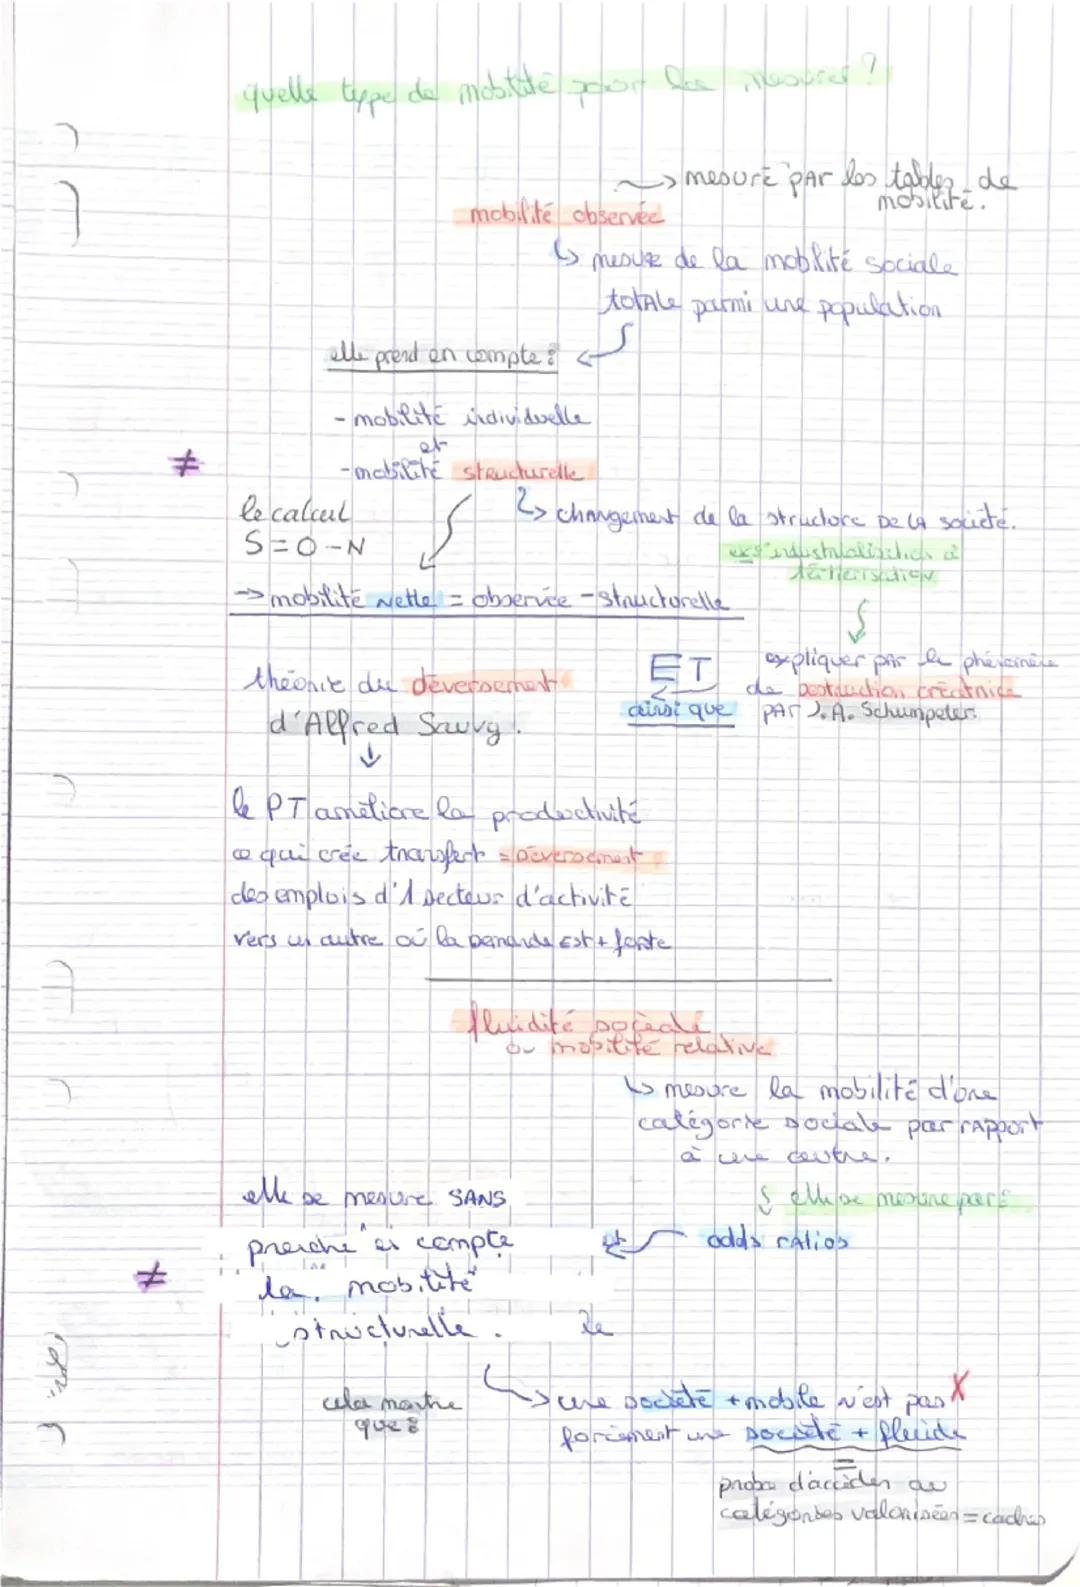 quelle type de mobilité pour les mesurer ?
→ mesuré par les tables de
mobilité.
mobilité observée
↳ mesure de la mobilité sociale
totale parmi une population
elle prend en compte :
- mobilité individuelle
et
≠
- mobilité structurelle
le calcul
S = O - N
↳ changement de la structure de la société.
ex : industrialisation à
tertiarisation
→ mobilité nette = observée - structurelle
théorie du déversement
d'Alfred Sauvy.
ET
ainsi que
expliquer par le phénomène
de destruction créatrice
par J. A. Schumpeter.
le PT améliore la productivité
ce qui crée transfert = déversement
des emplois d'1 secteur d'activité
vers un autre où la demande est + forte
fluidité sociale
ou mobilité relative
↳ mesure la mobilité d'une
catégorie sociale par rapport
à une autre.
elle se mesure par :
odds ratios
et
elle se mesure SANS
prendre en compte
≠
la mobilité
structurelle.
le
cela montre
que :
→ une société + mobile n'est pas
forcément une société + fluide
=
proba d'accéder au
catégories valorisées = cadres